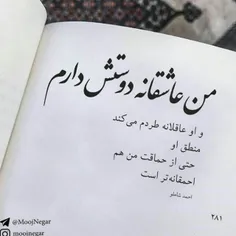 من عاشقانه دوستش دارم
و او عاقلانه طردم می‌کند
منطق او
حتی از حماقت من هم
احمقانه‌تر است
احمد شاملو
۲۸۱
@MoojNegar
moojnegar